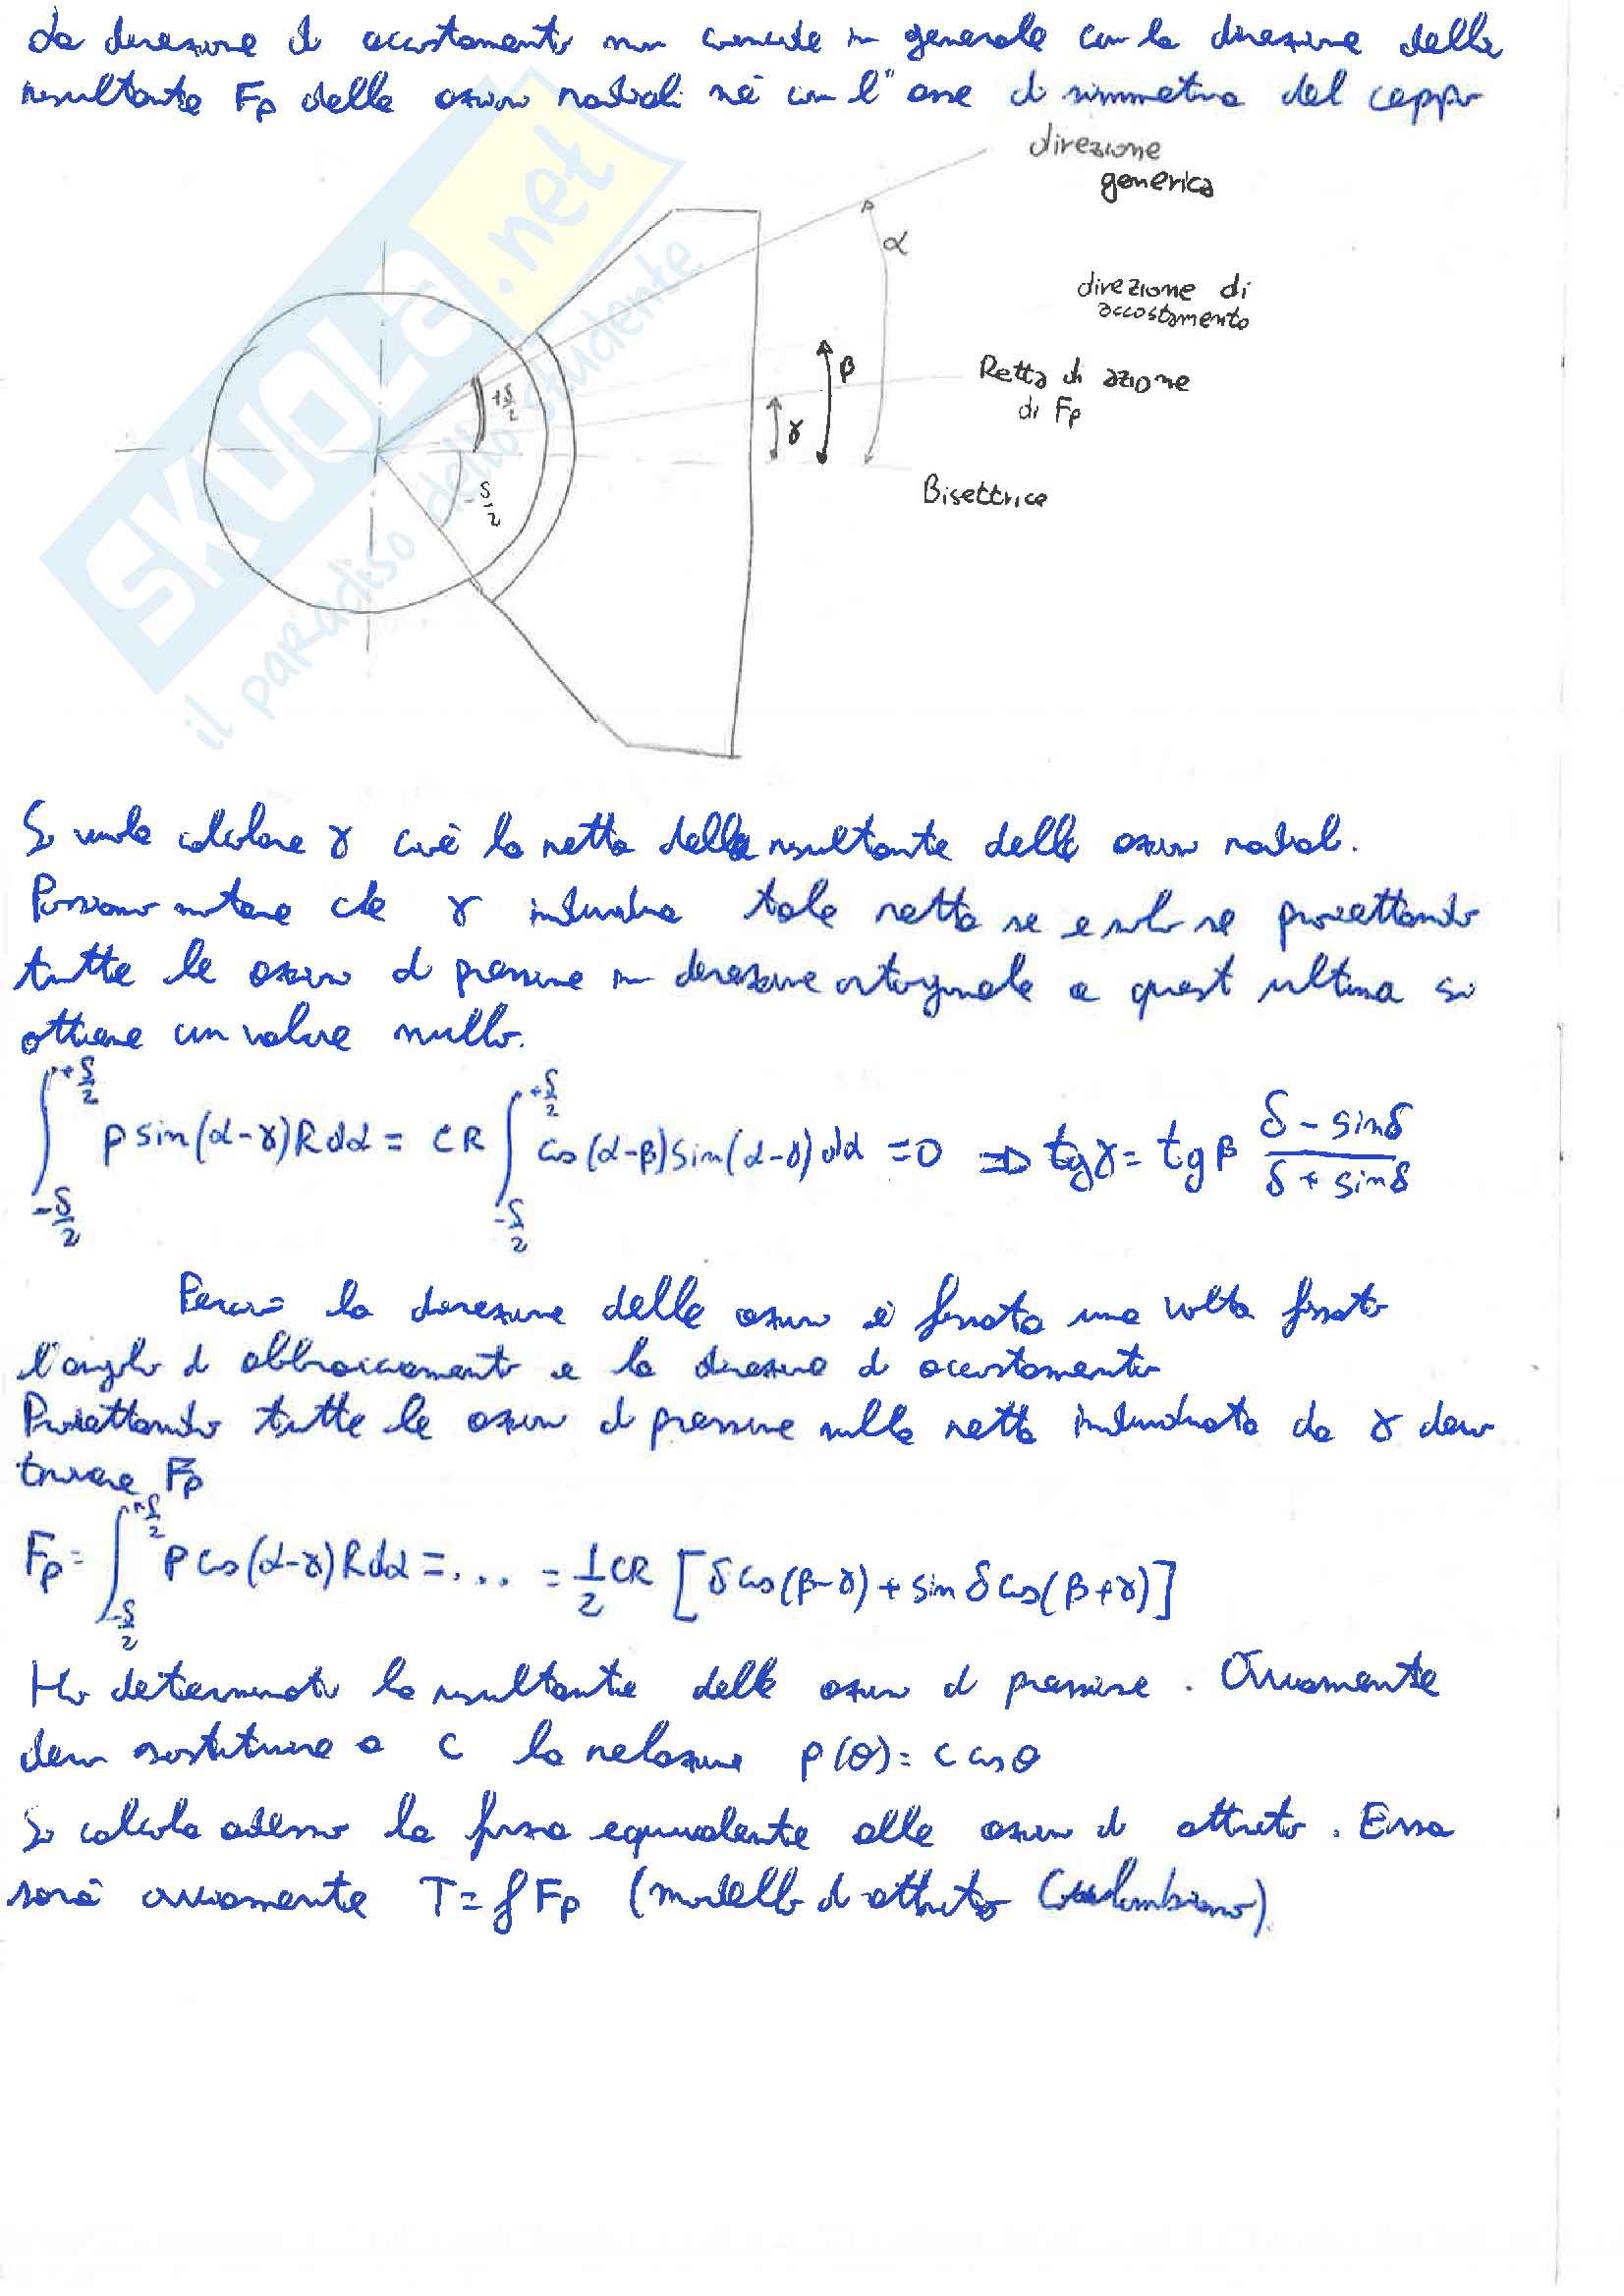 La direzione di accostamento non coincide in generale con la direzione della
risultante Fp delle azioni radiali nè con l'' asse di simmetria del ceppo
direzione
generica
α
direzione di
accostamento
β
Retta di azione
di Fp
+δ/2
γ
Bisettrice
-δ/2
SKUOLA.net
il paradiso dello studente
Si vuole calcolare γ cioè la retta della risultante delle azioni radiali.
Possiamo notare che γ individua tale retta se e solo se proiettando
tutte le azioni di pressione in direzione ortogonale a quest ultima si
ottiene un valore nullo.
∫_{-δ/2}^{+δ/2} p sin(α-γ)R dα = CR ∫_{-δ/2}^{+δ/2} cos(α-β)sin(α-γ)dα = 0 ⇒ tgγ = tgβ (δ - sinδ)/(δ + sinδ)
Perciò la direzione delle azioni è fissata una volta fissato
l'angolo di abbracciamento e la direzione di accostamento
Proiettando tutte le azioni di pressione sulla retta individuata da γ devo
trovare Fp
Fp = ∫_{-δ/2}^{+δ/2} p cos(α-γ)R dα = ... = 1/2 CR [δ cos(β-γ) + sin δ cos(β+γ)]
Ho determinato la risultante delle azioni di pressione. Ovviamente
devo sostituire a C la relazione p(θ) = C cos θ
Si calcola adesso la forza equivalente alle azioni di attrito. Essa
sarà ovviamente T = f Fp (modello di attrito Coulombiano).